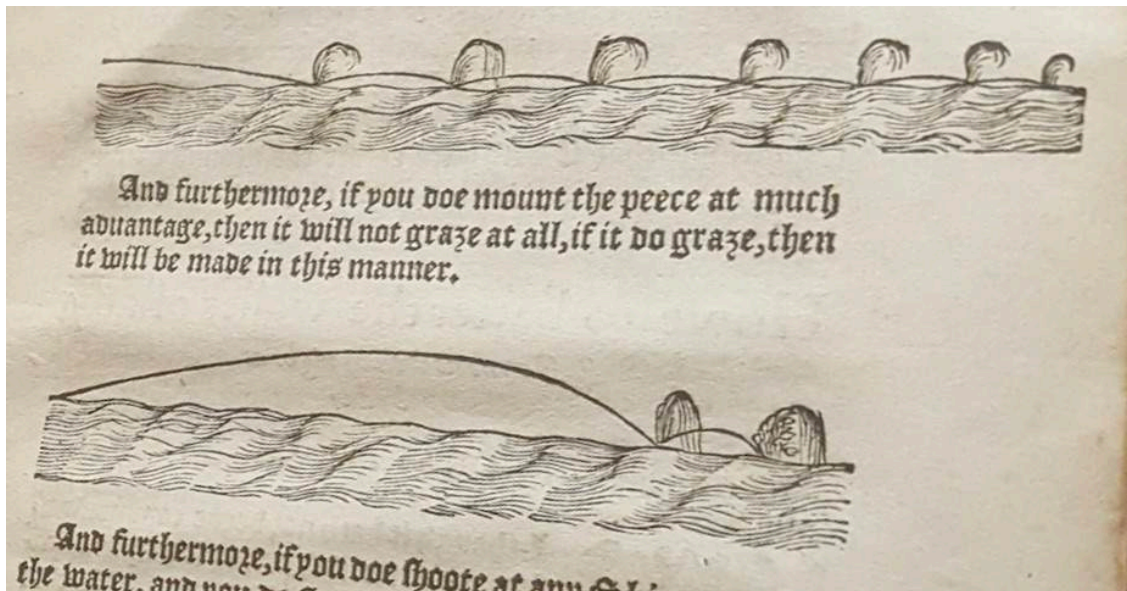 And furthermore, if you doe mount the peece at much
aduantage, then it will not graze at all, if it do graze, then
it will be made in this manner.
And furthermore, if you doe shoote at any
the water, and you